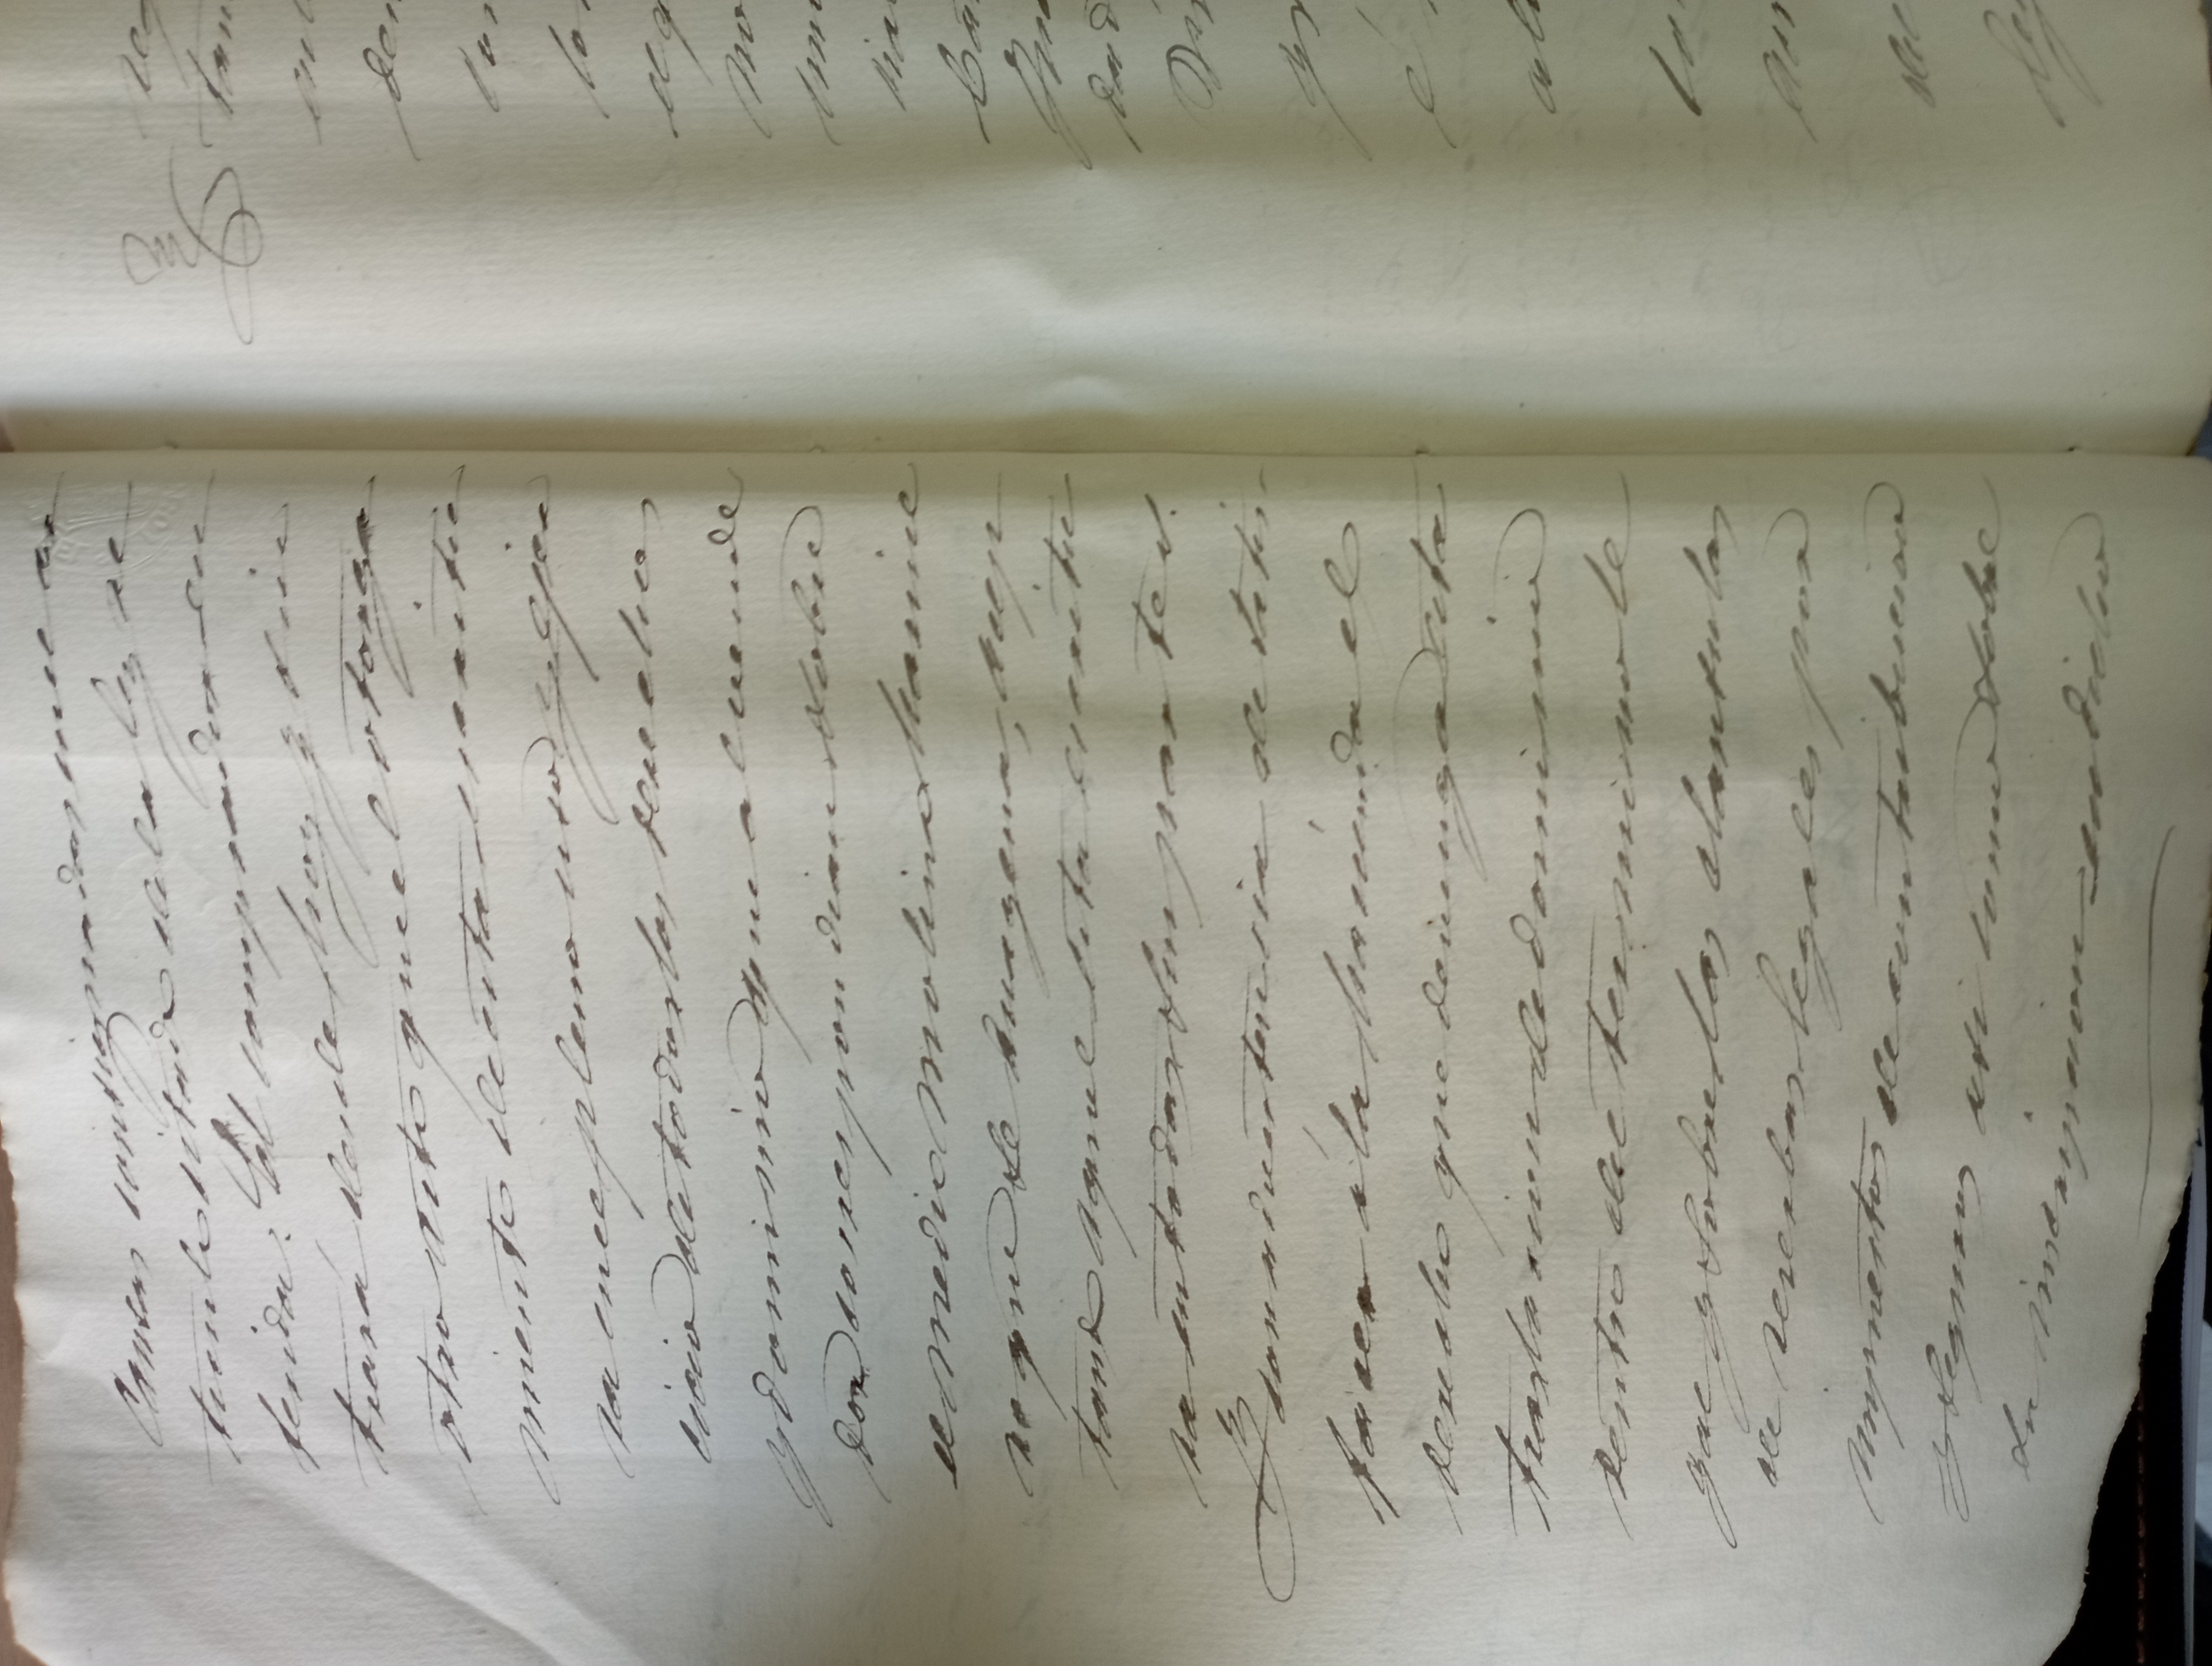 causas consignadas en el ar
tículo citado de la ley re
ferida. El comprador en
trará desde hoy y sin
otro acto que el otorga
miento de esta escritu
ra en el pleno uso y ejer
cicio de todos los derechos
y dominio que al vende
dor correspondian sobre
el medio molino harine
ro que se enagena, acep
tando aquel esta escritu
ra en todas sus partes.
Y con advertencia de satis-
facer á la hacienda el
derecho que devenga esta
traslacion de dominio
dentro del termino le
gal y sobre las clausulas
de reserbas legales por
impuestos de contribucion
y seguros asi como sobre
su inscripcion en dicho
reg
tan
den
no
dad